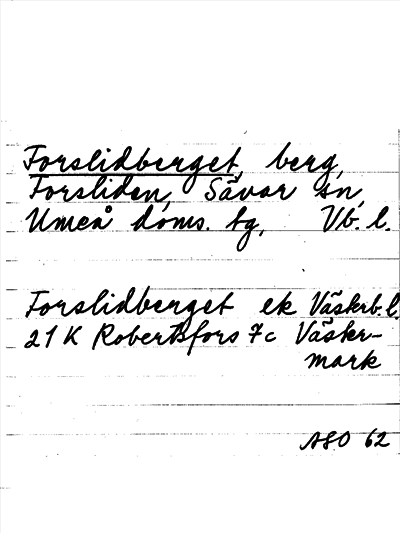 Forslidberget, berg,
Forsliden, Sävar sn,
Umeå doms. tg, Vb. l.
Forslidberget ek Västerb. l.
21 K Robertsfors 7c Väster-
mark
ASO 62